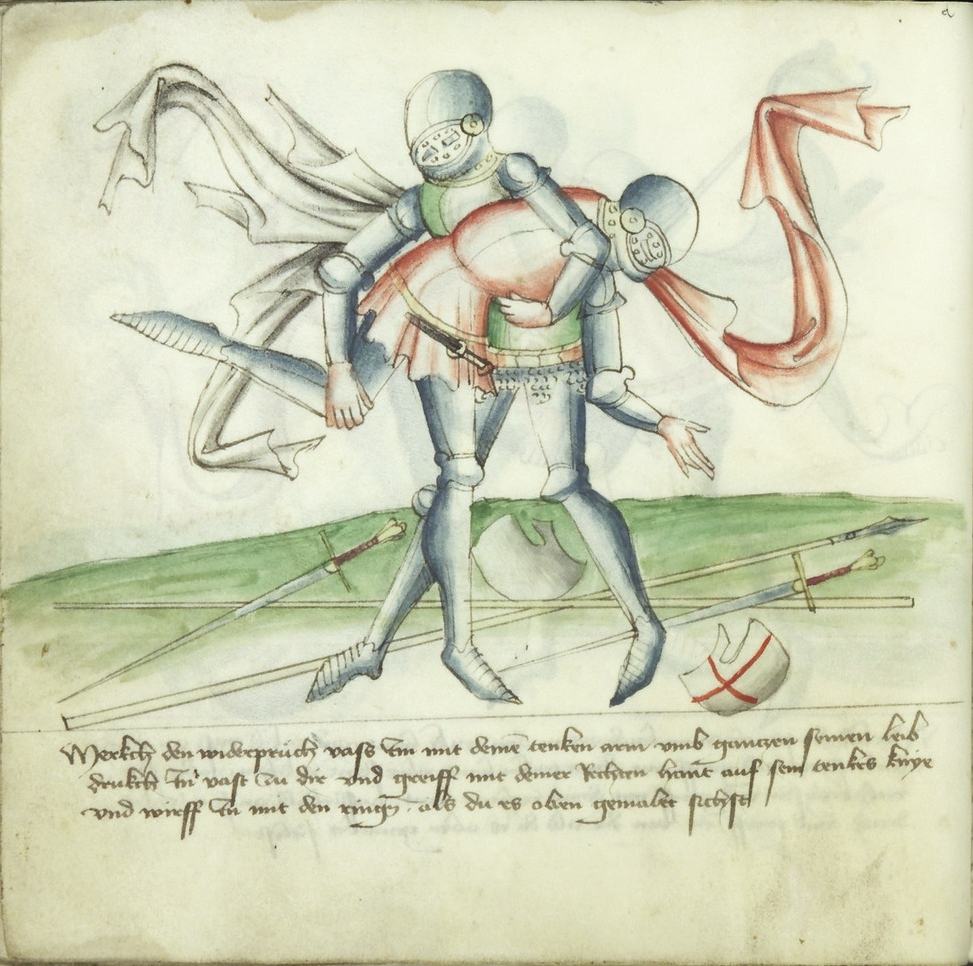 Merckh den widerpruch vass In mit deine tenken arm vmb ganczen seinen leib
drukch In vast zu dir vnd greiff mit deiner Rechten hant auf sein tenkes knye
vnd wirff In mit den ringn als du es oben gemalet sichst